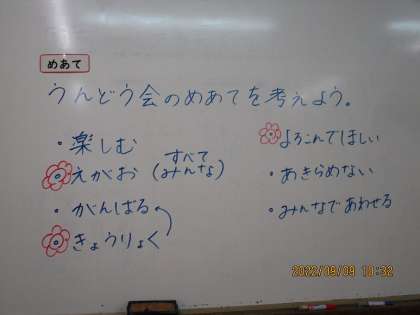 めあて
うんどう会のめあてを考えよう。
・楽しむ
えがお(すべてみんな)
・がんばる
きょうりょく
よろこんでほしい
・あきらめない
・みんなであわせる
2022/09/09 10:32